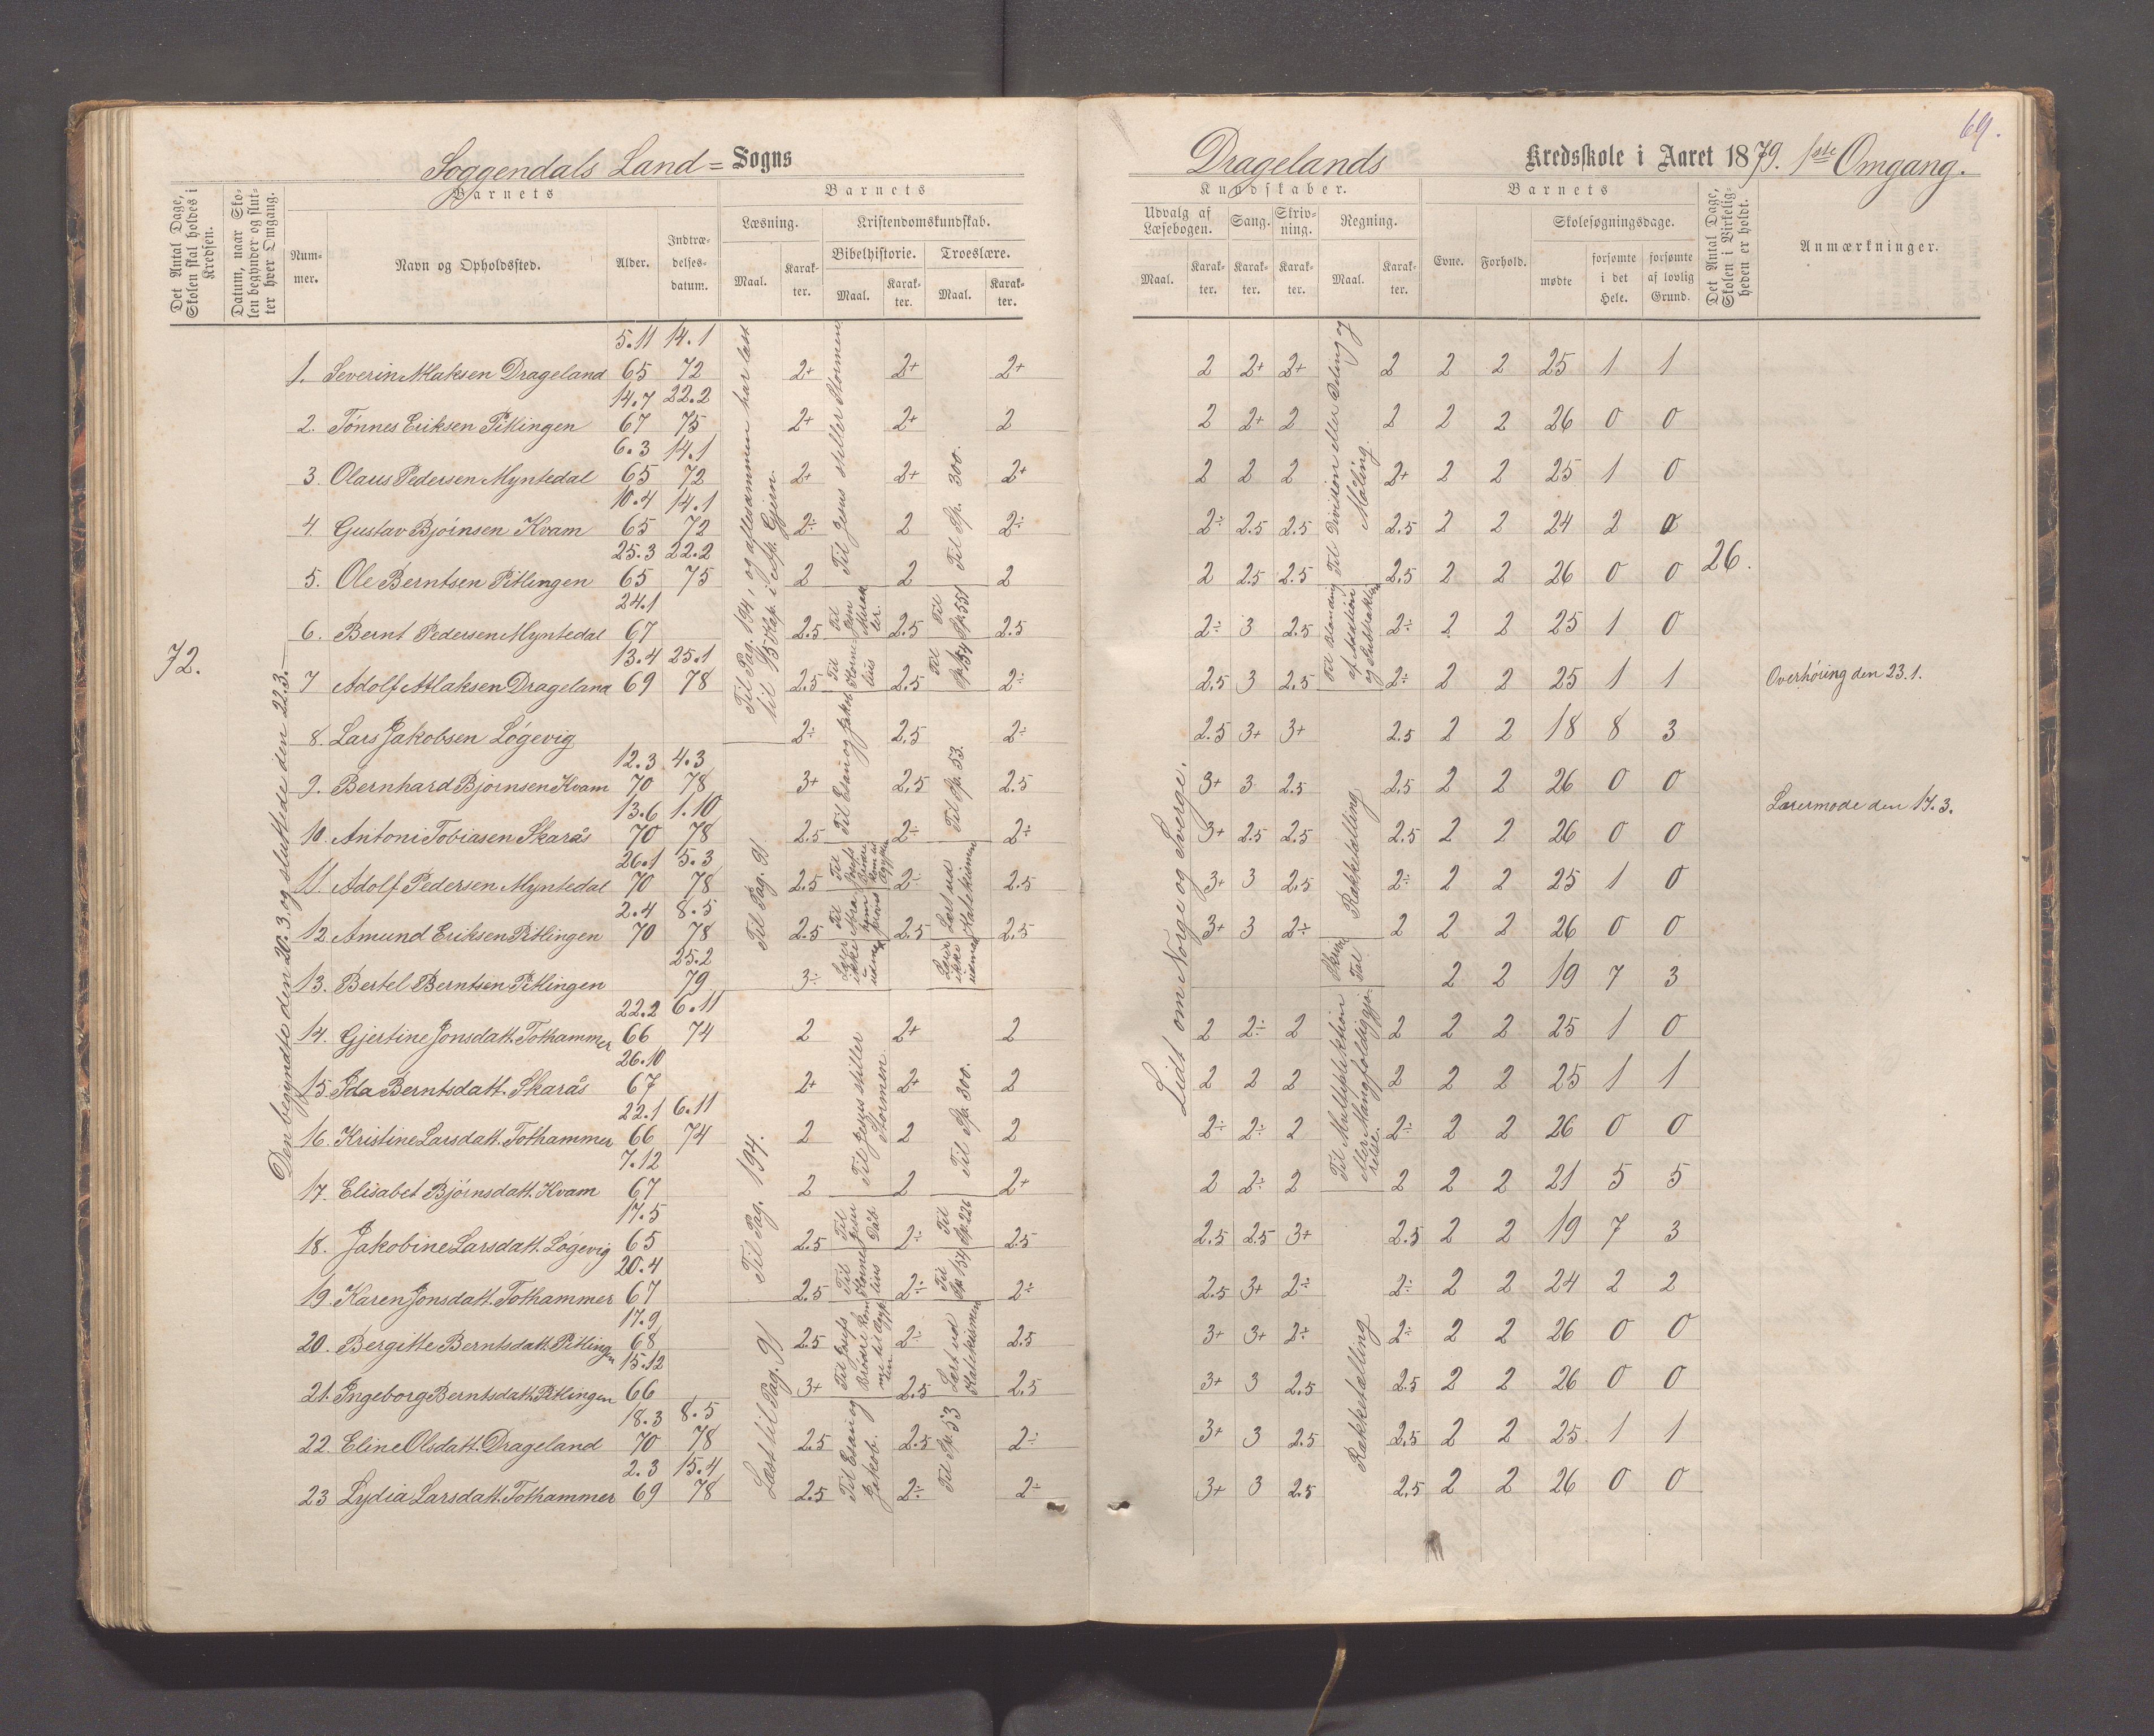 69.
Soggendals Land= Sogns
Dragelands Kredsskole i Aaret 1879. 1ste Omgang.
Det Antal Dage, Skolen skal holdes i Kredsen.
Datum, naar Skolen begynder og slutter hver Omgang.
Barnets
Nummer.
Navn og Opholdssted.
Alder.
Indtrædelsesdatum.
Barnets
Læsning.
Maal.
Karakter.
Kristendomskundskab.
Bibelhistorie.
Maal.
Karakter.
Troeslære.
Maal.
Karakter.
Kundskaber.
Udvalg af Læsebogen.
Maal.
Karakter.
Sang.
Karakter.
Skrivning.
Karakter.
Regning.
Maal.
Karakter.
Barnets
Evne.
Forhold.
Skolesøgningsdage.
mødte
forsømte i det Hele.
forsømte af lovlig Grund.
Det Antal Dage, Skolen i Virkeligheden er holdt.
Anmærkninger.
72.
Den begyndte den 20.3. og sluttede den 22.3.
5.11 14.1
1. Severin Aslaksen Drageland 65 72 2+ 2+ 2+ 2 2+ 2+ 2 2 2 25 1 1
14.7 22.2
2. Tönnes Eriksen Pitlingen 67 75 2+ 2+ 2 2 2+ 2 2 2 2 26 0 0
6.3 14.1
3. Olaus Pedersen Myntedal 65 72 2+ 2+ 2+ 2 2 2 2+ 2 2 25 1 0
10.4 14.1
4. Gustav Bjóinsen Kvam 65 72 2÷ 2 2÷ 2÷ 2.5 2.5 2.5 2 2 24 2 0
25.3 22.2
5. Ole Berntsen Pitlingen 65 75 2 2 2 2 2.5 2.5 2.5 2 2 26 0 0
24.1
6. Bernt Pedersen Myntedal 67 2.5 2.5 2.5 2÷ 3 2.5 2÷ 2 2 25 1 0
13.4 25.1
7 Adolf Atlaksen Drageland 69 78 2.5 2.5 2÷ 2.5 3 2.5 2÷ 2 2 25 1 1
8. Lars Jakobsen Lógevig 2÷ 2.5 2÷ 2.5 3+ 3+ 2.5 2 2 18 8 3
12.3 4.3
9. Bernhard Bjoinsen Kvam 70 78 3+ 2.5 2.5 3+ 3 2.5 2.5 2 2 26 0 0
13.6 1.10
10. Antoni Tobiasen Skarås 70 78 2.5 2÷ 2÷ 3+ 2.5 2.5 2.5 2 2 26 0 0
26.1 5.3
11. Adolf Pedersen Myntedal 70 78 2.5 2÷ 2.5 3+ 3 2.5 2÷ 2 2 25 1 0
2.4 8.5
12. Amund Eriksen Pitlingen 70 78 2.5 2.5 2.5 3+ 3 2÷ 2 2 2 26 0 0
25.2
13. Bertel Berntsen Pitlingen 79 3÷ 2 2 19 7 3
22.2 6.11
14. Gjertine Jonsdatt. Tothammer 66 74 2 2+ 2 2 2÷ 2 2 2 2 25 1 0
26.10
15. Ida Berntsdatt. Skarås 67 2+ 2+ 2 2 2 2 2 2 2 25 1 1
22.1 6.11
16. Kristine Larsdatt. Tothammer 66 74 2 2 2 2÷ 2÷ 2 2÷ 2 2 26 0 0
7.12
17. Elisabet Bjóinsdatt. Kvam 67 2 2 2+ 2 2÷ 2 2 2 2 21 5 5
17.5
18. Jakobine Larsdatt. Lógevig 65 2.5 2÷ 2.5 2.5 2.5 3+ 2.5 2 2 19 7 3
20.4
19. Karen Jonsdatt. Tothammer 67 2.5 2÷ 2÷ 2.5 3+ 2÷ 2÷ 2 2 24 2 2
17.9
20. Bergitte Berntsdatt. Pitlingen 68 2.5 2÷ 2.5 3+ 3+ 2÷ 2÷ 2 2 26 0 0
15.12
21. Ingeborg Berntsdatt. Pitlingen 66 3+ 2.5 2.5 3+ 3 2.5 2.5 2 2 26 0 0
18.3 8.5
22. Eline Olsdatt. Drageland 70 78 2.5 2.5 2÷ 3+ 3 2.5 2.5 2 2 25. 1 1
2.3 15.4
23 Lydia Larsdatt. Tothammer 69 78 2.5 2÷ 2÷ 3+ 3 2.5 2.5 2 2 26 0 0
Til Pag. 194, og aftensammen har læst
til 15 Kap. i Ap. Gjern.
Til Pag. 91
Til Pag. 194.
Læst til Pag. 91
Til Jesus stiller Stormen
Til Jesu Mirakler.
Til Kornelius
Til Esau og Jakob
Til Josefs Brödre kom til Ægypten
Til Abrahams
Læser ikke udenad
Til Jesus stiller Stormen.
Til Jesu Dåb.
Til Kornelius
Til Josefs Brödre komme til Ægypten
Til Esau og Jakob.
Til Sp. 300.
Til Sp. 551
Til Sp. 134
Til Sp. 53.
Læst ud Katekismen
Læser ikke udenad
Til Sp. 300.
Til Sp. 226
Til Sp. 134
Læst ud Katekismen
Til Sp. 53
Lidt om Norge og Sverge.
Til Division eller Deling og Måling.
Til Blanding af Addition og Subtraktion
Rækketælling
Skrive Tal
Til Multiplikation eller Mangfoldiggjörelse.
Rækketælling
26.
Overhóring den 23.1.
Lærermöde den 17.3.